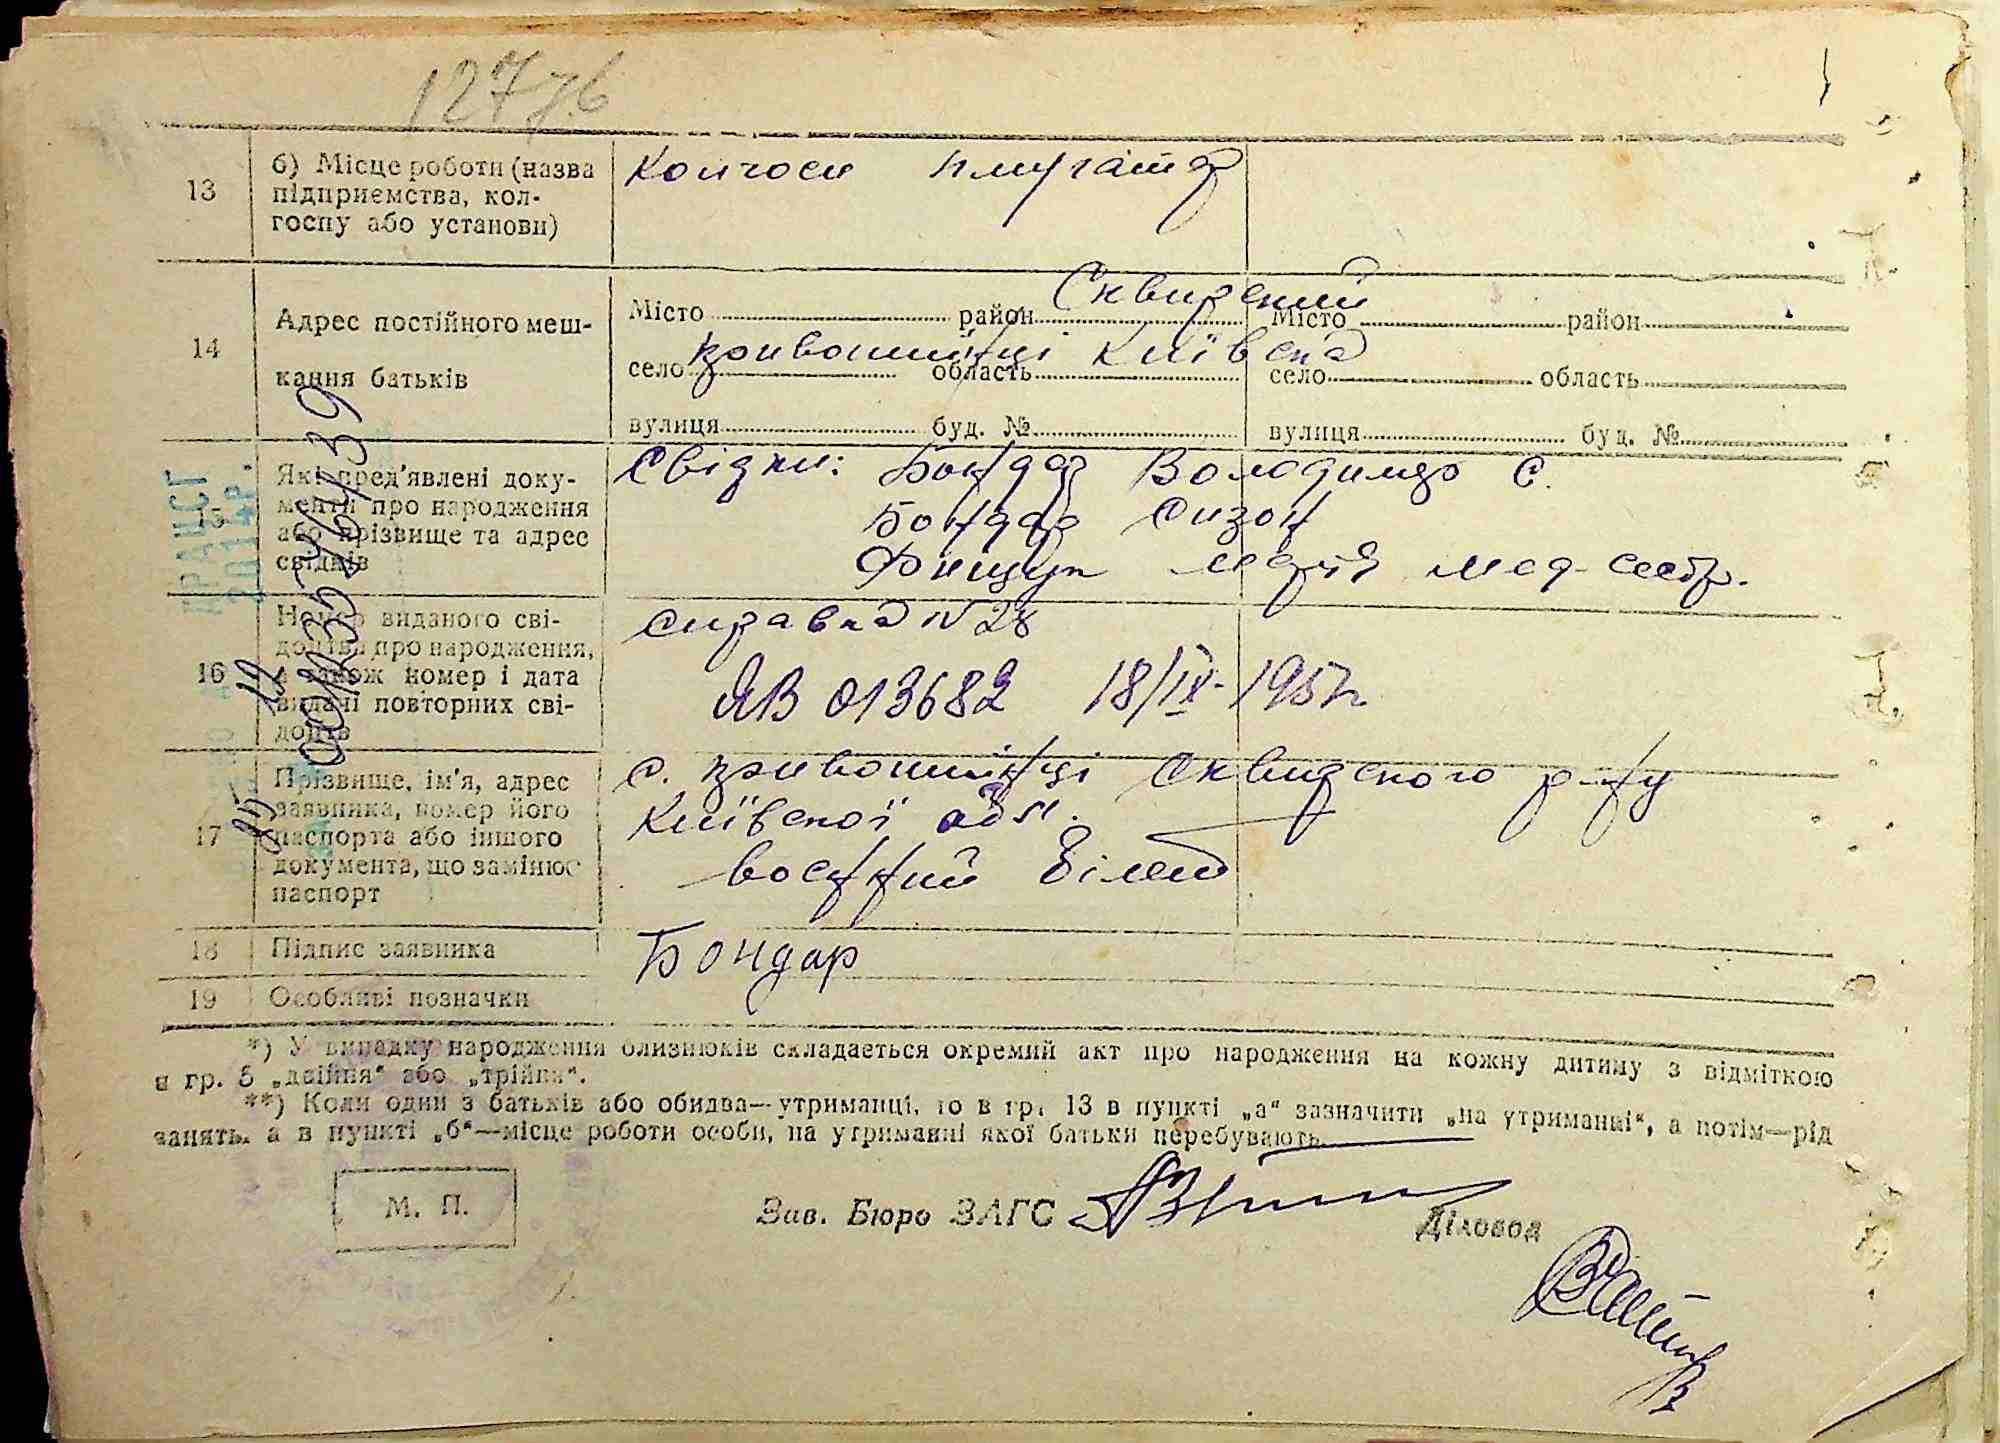 127зв
13
б) Місце роботи (назва
підприємства, кол-
госпу або установи)
Колгосп
14
Адрес постійного меш-
кання батьків
Місто район Сквирский Місто район
село Кривошиїнці область Київська село область
вулиця буд. № вулиця буд. №
Які пред'явлені доку-
менти про народження
або прізвище та адрес
свідків
Свідки: Бондар Володимир С.
Бондар Сизон
Марія мед-сестр.
16
Номер виданого сві-
доцтва про народження,
а також номер і дата
видачі повторних сві-
доцтв
справка N 28
ЯВ 013682 18/IX-1957р.
17
Прізвище, ім'я, адрес
заявника, номер його
паспорта або іншого
документа, що замінює
паспорт
с. Кривошиїнці Сквирского р-ну
Київскої обл.
воєнний білет
18
Підпис заявника
Бондар
19
Особливі позначки
*) У випадку народження близнюків складається окремий акт про народження на кожну дитину з відміткою
в гр. 5 „двійня“ або „трійня“.
**) Коли один з батьків або обидва—утриманці, то в гр. 13 в пункті „а“ зазначити „на утриманні“, а потім—рід
занять, а в пункті „б“—місце роботи особи, на утриманні якої батьки перебувають.
М. П.
Зав. Бюро ЗАГС
Діловод